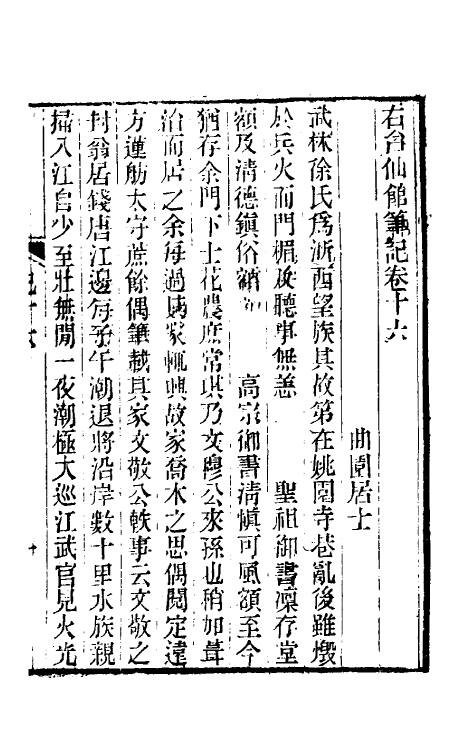 右台仙館筆記卷十六
曲園居士
武林徐氏爲浙西望族其故第在姚園寺巷亂後雖燬
於兵火而門楣及聽事無恙　聖祖御書凜存堂
額及清德鎮俗額　高宗御書清愼可風額至今
猶存余門下士花農庶常琪乃文穆公來孫也稍加葺
治而居之余每過其家輒興故家喬木之思偶閱定遠
方蓮舫太守蔗餘偶筆載其家文敬公軼事云文敬之
封翁居錢唐江邊每子午潮退將沿岸數十里水族親
掃入江自少至壯無閒一夜潮極大巡江武官見火光